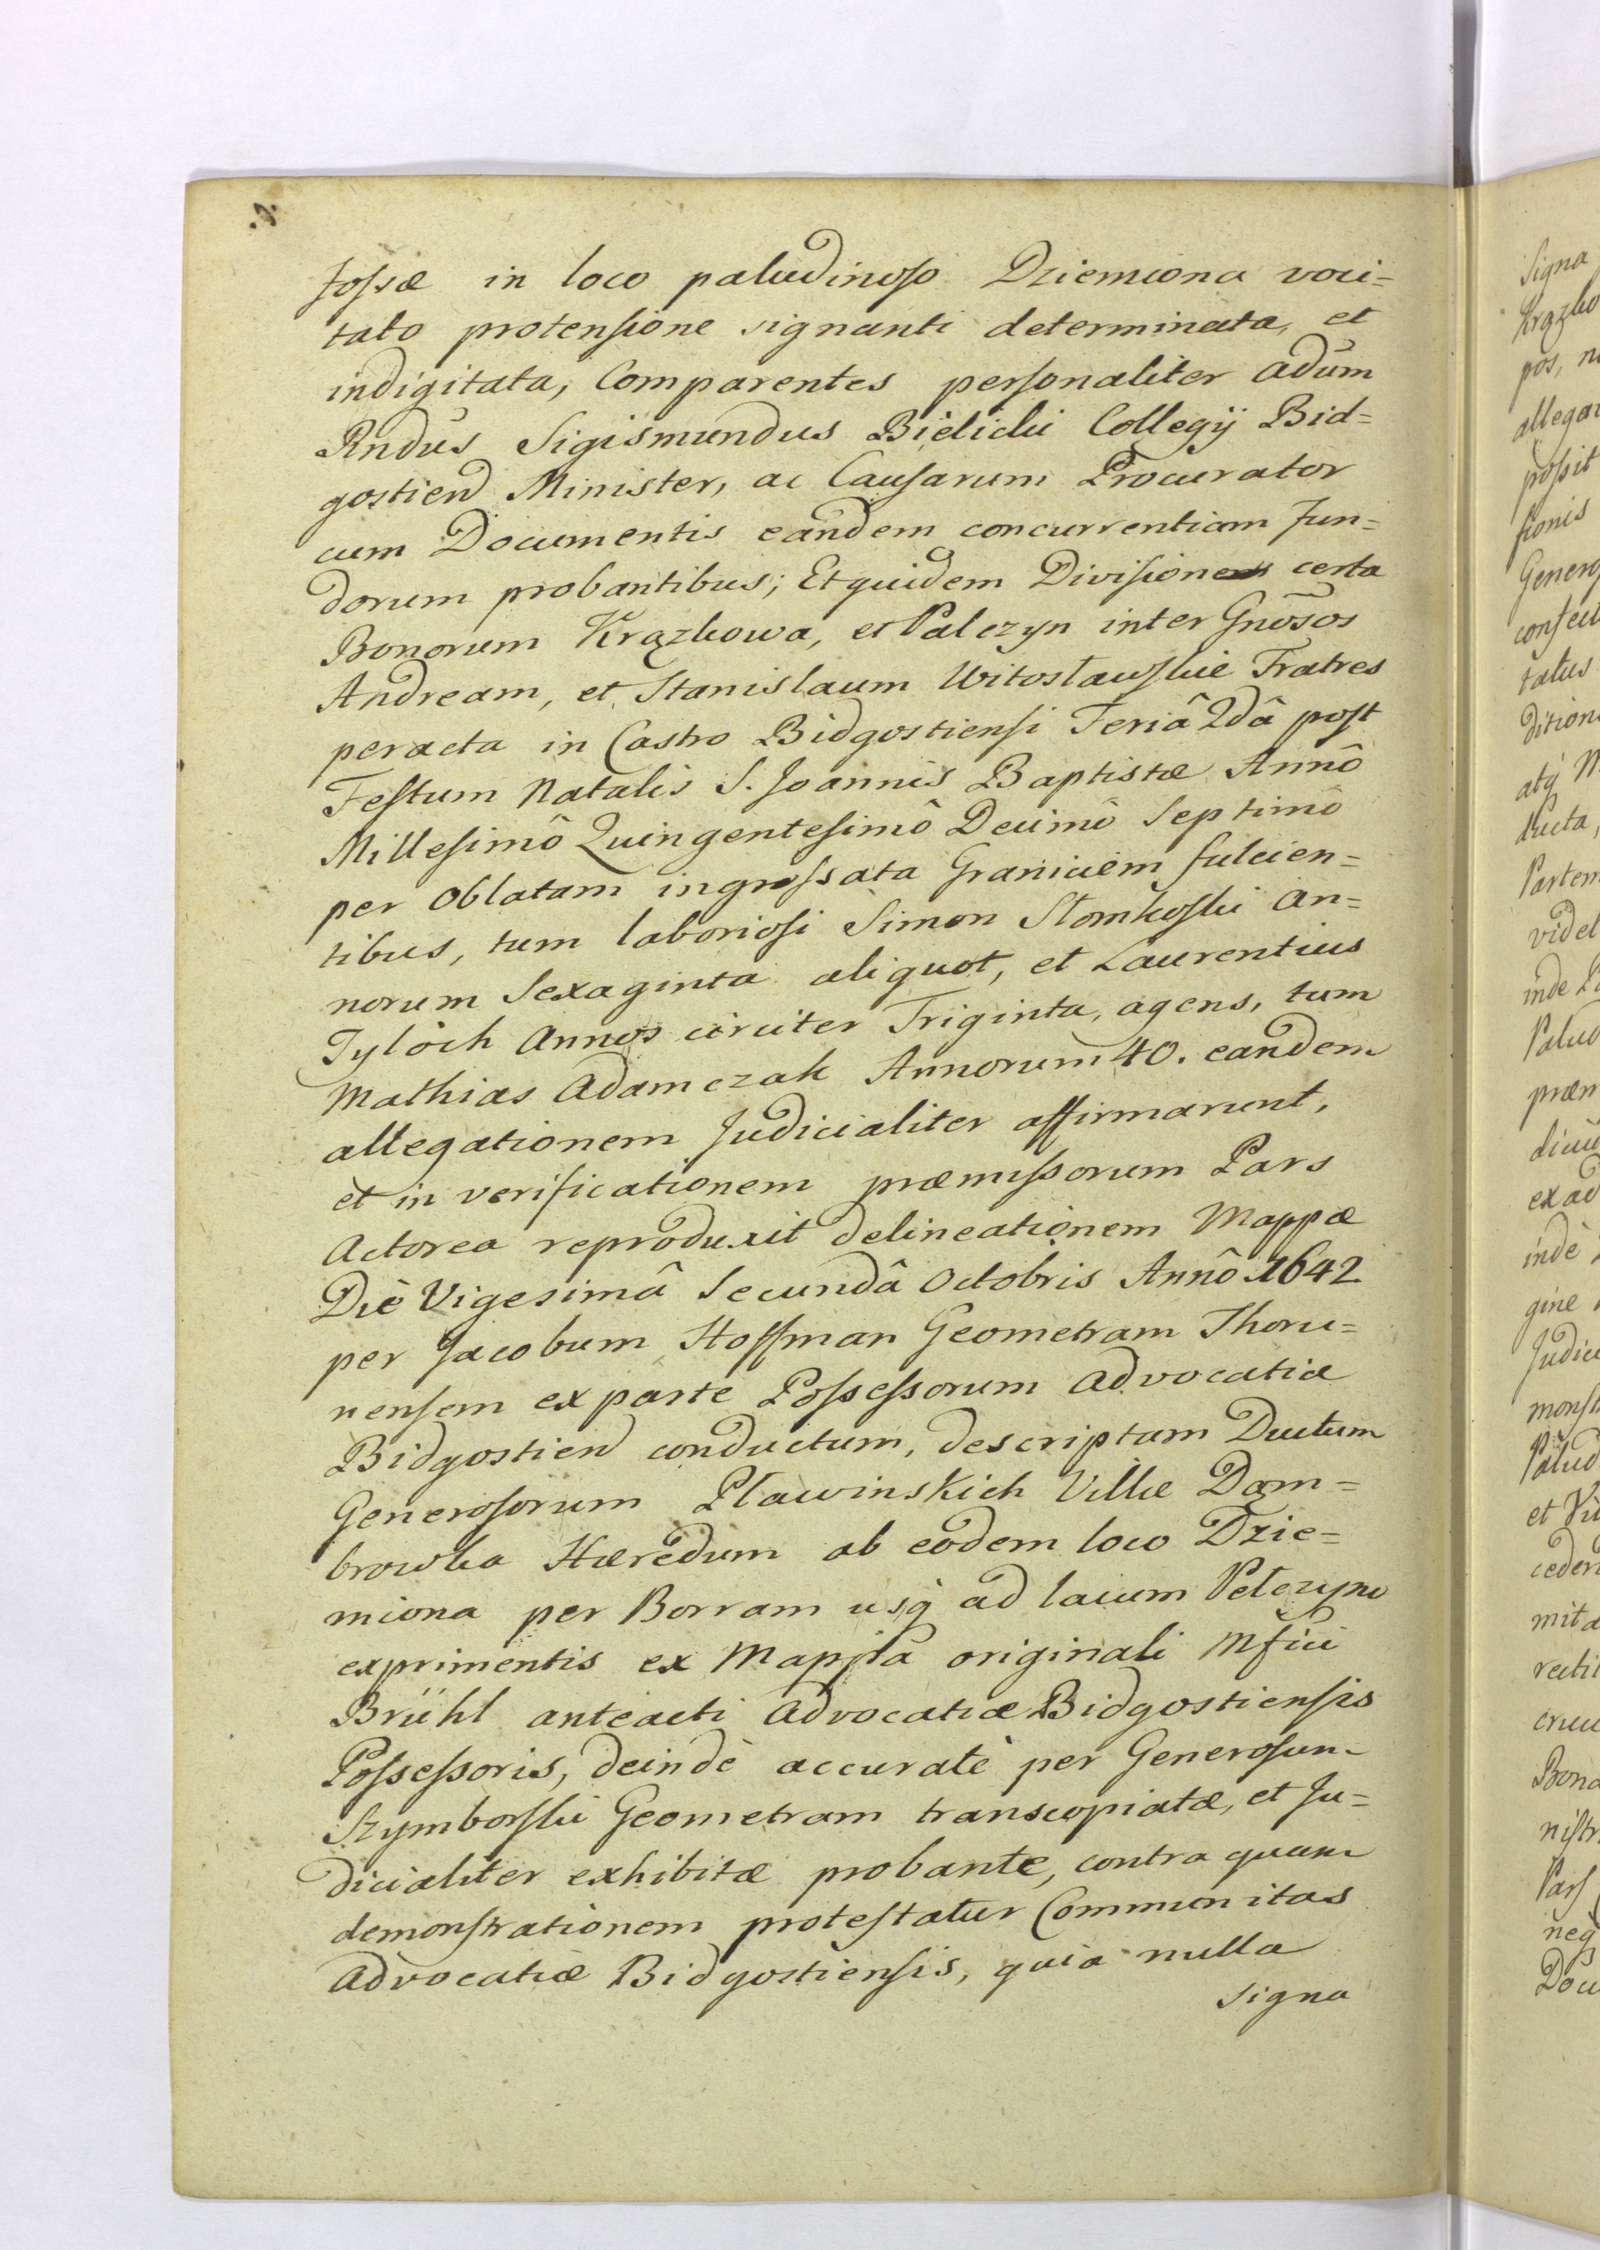 fossæ in loco paludinoso Dziemiona voci=
tato protensione signanti determinata, et
indigitata, Comparentes personaliter adūm
Rndūs Sigismundus Bielicki Collegÿ Bid=
gostien Minister, ac Causarum Procurator
cum Documentis eandem concurrentiam fun=
dorum probantibus; Et quidem Divisione certa
Bonorum Krązkowa, et Palczyn inter Gnōsos
Andream, et Stanislaum Witosławskie Fratres
peracta in Castro Bidgostiensi Feriâ 2dâ post
Festum Natalis S. Joannis Baptistæ Annô
Millesimô Quingentesimô Decimô Septimô
per Oblatam ingrossata Graniciem fulcien=
tibus, tum laboriosi Simon Słomkoski an=
norum Sexaginta aliquot, et Laurentius
Tyloch Annos circiter Triginta, agens, tum
Mathias Adamczak Annorum 40. eandem
allegationem Judicialiter affirmarunt,
et in verificationem præmissorum Pars
Actorea reproduxit delineationem Mappæ
Diè Vigesimâ Secundâ Octobris Annô 1642
per Jacobum Hoffman Geometram Thoru=
nensem ex parte Possessorum Advocatiæ
Bidgostien conductum, descriptam Ductum
Generosorum Pławinskich Villæ Dąm=
browka Hæredum ab eodem loco Dzie=
miona per Borram usq̀ ad lacum Petczyno
exprimentis ex Mappa originali Mfici
Brühl anteacti Advocatiæ Bidgostiensis
Possessoris, deindè accuratè per Generosum
Szymborski Geometram transcopiatæ, et Ju=
dicialiter exhibitæ probante, contra quam
demonstrationem protestatur Communitas
Advocatiæ Bidgostiensis, quia nulla
signa